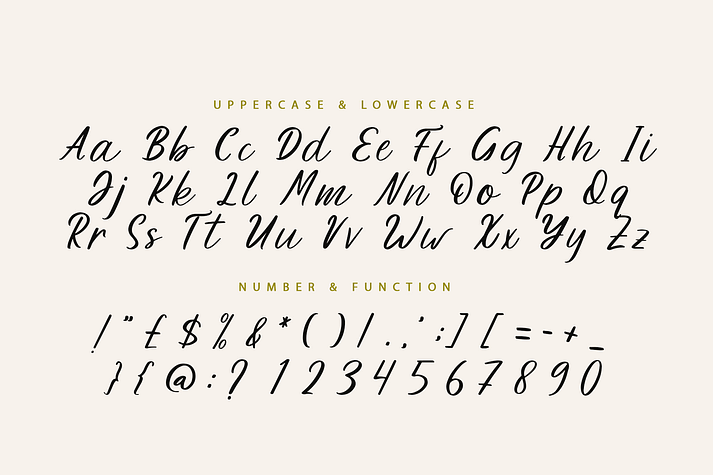 UPPERCASE & LOWERCASE
Aa Bb Cc Dd Ee Ff Gg Hh Ii
Jj Kk Ll Mm Nn Oo Pp Qq
Rr Ss Tt Uu Vv Ww Xx Yy Zz
NUMBER & FUNCTION
! " £ $ % & * ( ) / . , ' ; ] [ = - + _
} { @ : ? 1 2 3 4 5 6 7 8 9 0